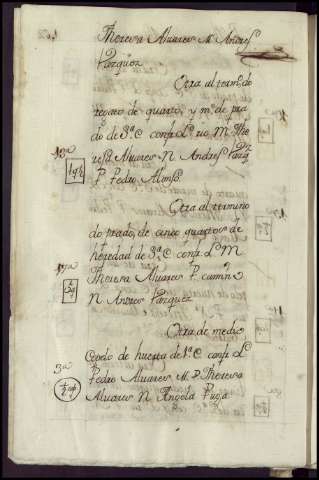 Theresa Alvares M. Andres
Vazquez
Otra al termº. do
regueo de quarto, y mº. de pra
do de 3ª. C confr. L. rio M. The
resa Alvares N Andres Vazqz
13ª
P. Pedro Alonso
Otra al termino
do prado, de cinco quartos de
heredad de 3ª. C confr. L. M
Theresa Alvares P. camino
17ª
N Andres Vazquez
Otra de medio
copelo de huerta de 1ª. C confr. L.
3ª
Pedro Alvares M. P. Theresa
Alvares N Angela Puga